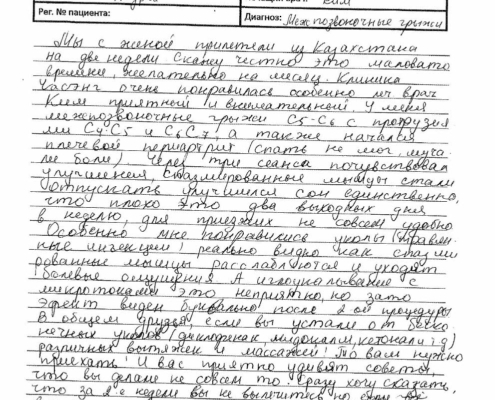 Рег. № пациента:
Диагноз: Межпозвоночные грыжи
Мы с женой прилетели из Казахстана
на две недели Скажу честно это маловато
времени, желательно на месяц. Клиника
очень понравилась особенно леч врач
Ким приятный и внимательный У меня
межпозвоночные грыжи С5-С6 с протрузия
ми С4-С5 и С6С7, а также начался
плечевой периартрит (спать не мог, муча
ли боли). Через три сеанса почувствовал
улучшения, спазмированные мышцы стали
отпускать улучшился сон единственно,
что плохо это два выходных дня
в неделю, для приезжих не совсем удобно
Особенно мне понравились уколы
ные инъекции! реально видно как спазми
рованные мышцы расслабляются и уходят
болевые ощущения А иглоукалывание с
микротоками это неприятно, но зато
эфект виден буквально после 2ой процедуры
В общем друзья, если вы устали от беско
нечных уколов (диклофенак, мидокалм, кетонал и тд)
различных вытяжек и массажей! То вам нужно
приехать! И вас приятно удивят советы,
что вы делаете не совсем то. Сразу хочу сказать,
что за 2е недели вы не вылечитесь но